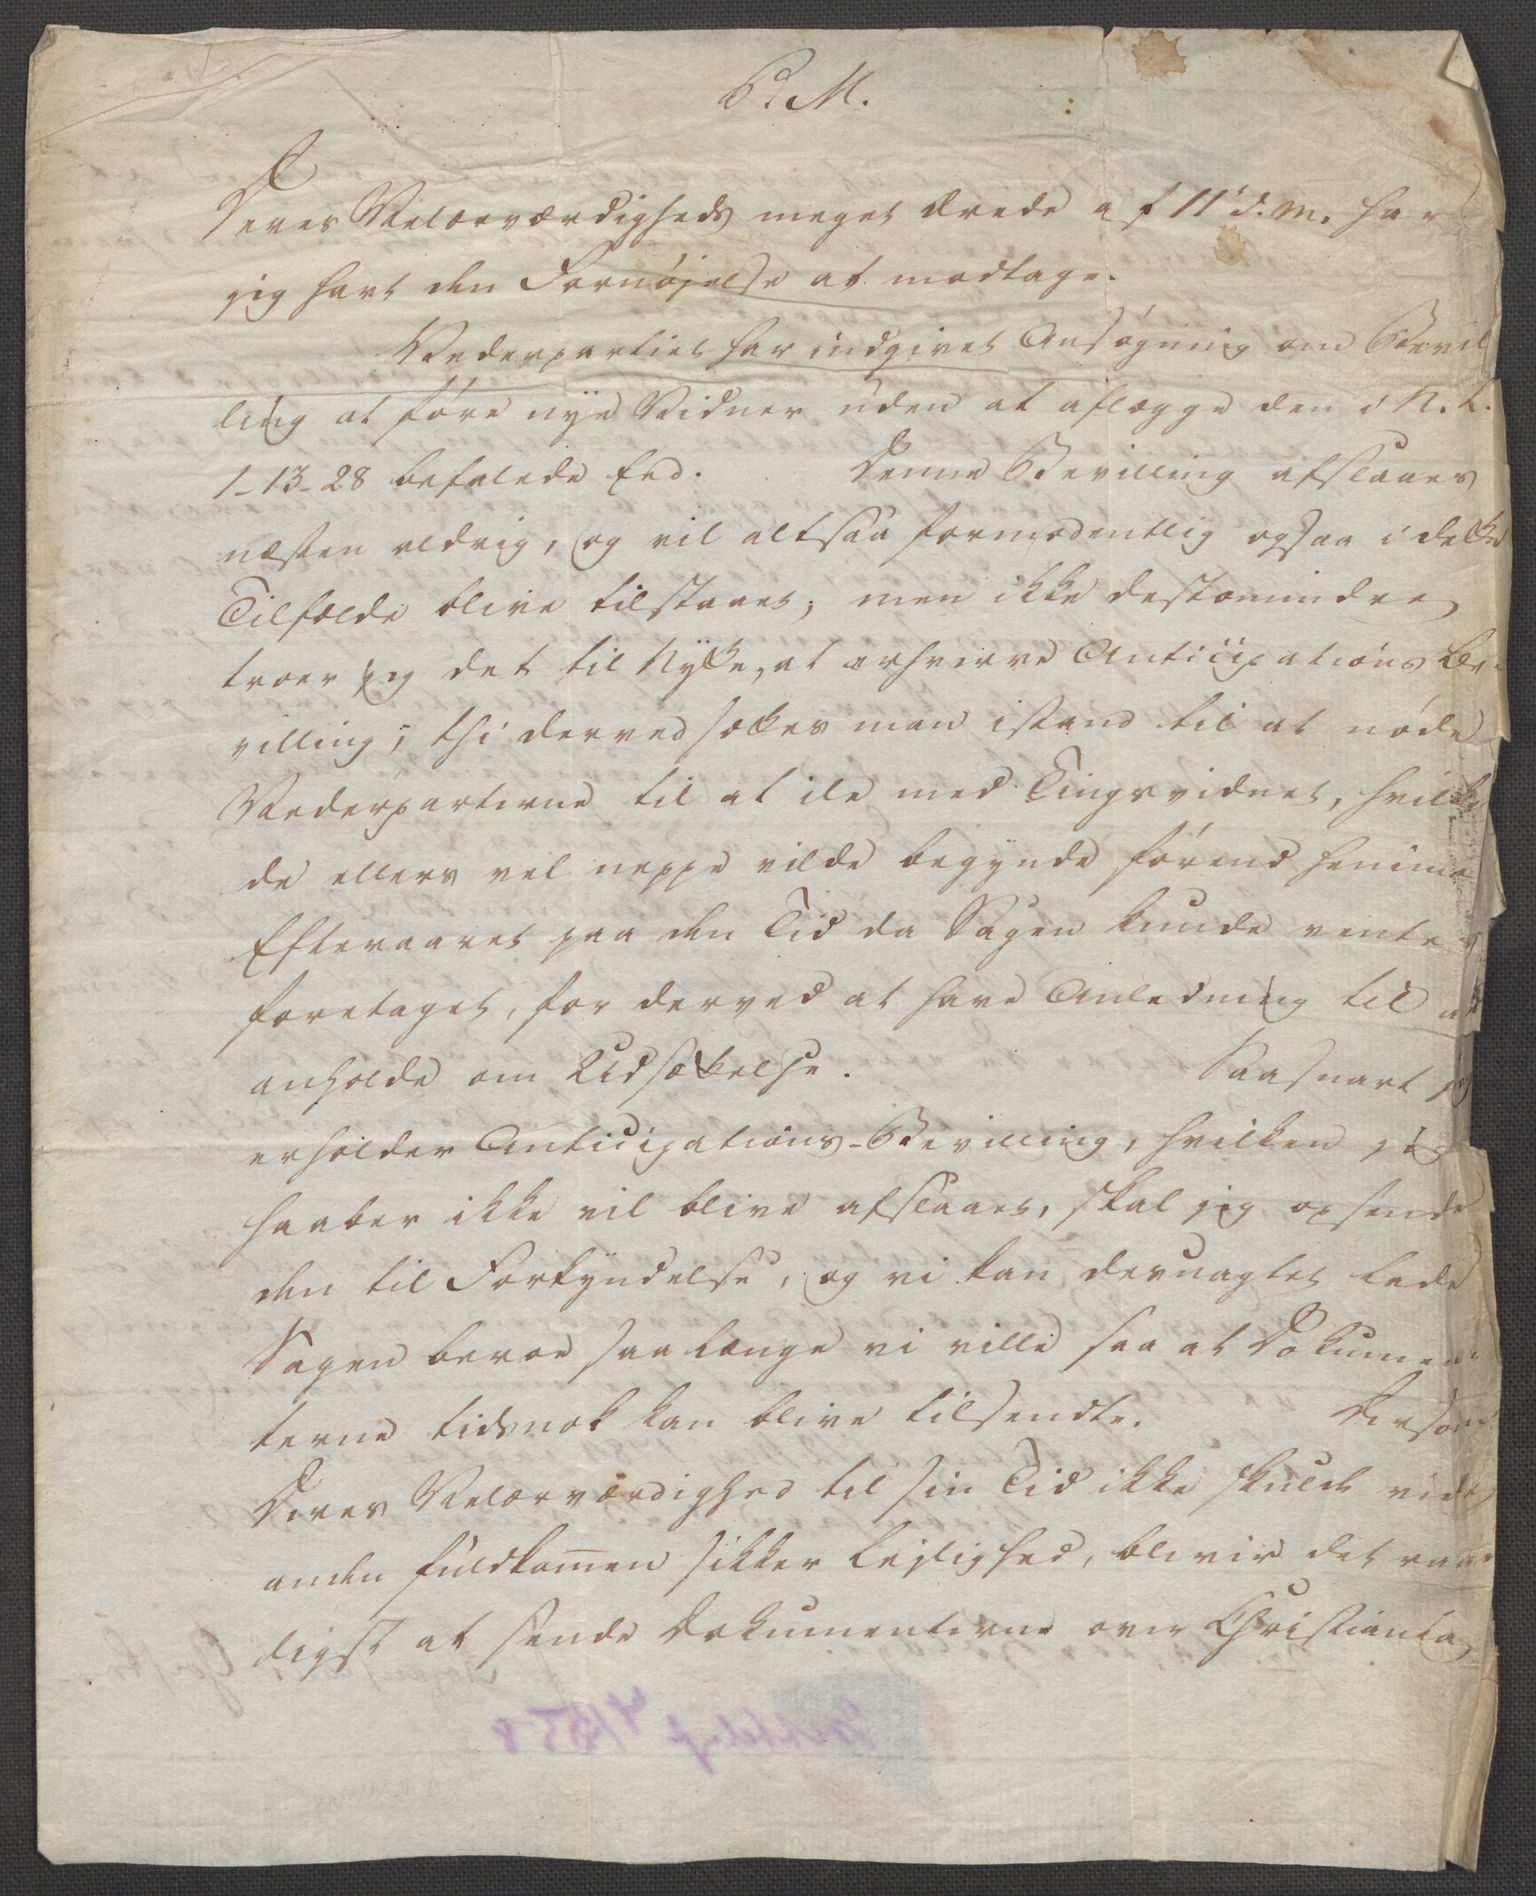 P. M.
Deres Velærværdigheds meget ærede af 11 d. M. har
jeg havt den Fornøjelse at modtage.
Vederpartiet har indgivet Ansøgning om Bevil
ling at føre nye Vidner uden at aflægge den i N. L.
1-13-28 befalede Eed. Denne Bevilling afslaaes
næsten aldrig, og vil altsaa formodentlig ogsaa i dette
Tilfælde blive tilstaaet; men ikke destomindre
troer jeg det til Nytte, at erhverve Anticipations Be-
villing; thi derved sættes man istand til at nøde
Vederparterne til at ile med Tingsvidnet, hvilket
de ellers vel neppe vilde begynde førend henimod
Efteraaret paa den Tid da Sagen kunde ventes
foretaget, for derved at have Anledning til at
anholde om Udsættelse. Saasnart jeg
erholder Anticipations-Bevilling, hvilken jeg
haaber ikke vil blive afslaaet, skal jeg opsende
den til Forkyndelse, og vi kan desuagtet lade
Sagen beroe saa længe vi ville saa at Dokumen-
terne tidsnok kan blive tilsendte. Dersom
Deres Velærværdighed til sin Tid ikke skulde vide
anden fuldkommen sikker Lejlighed, bliver det raa
ligst at sende Dokumenterne over Christiania